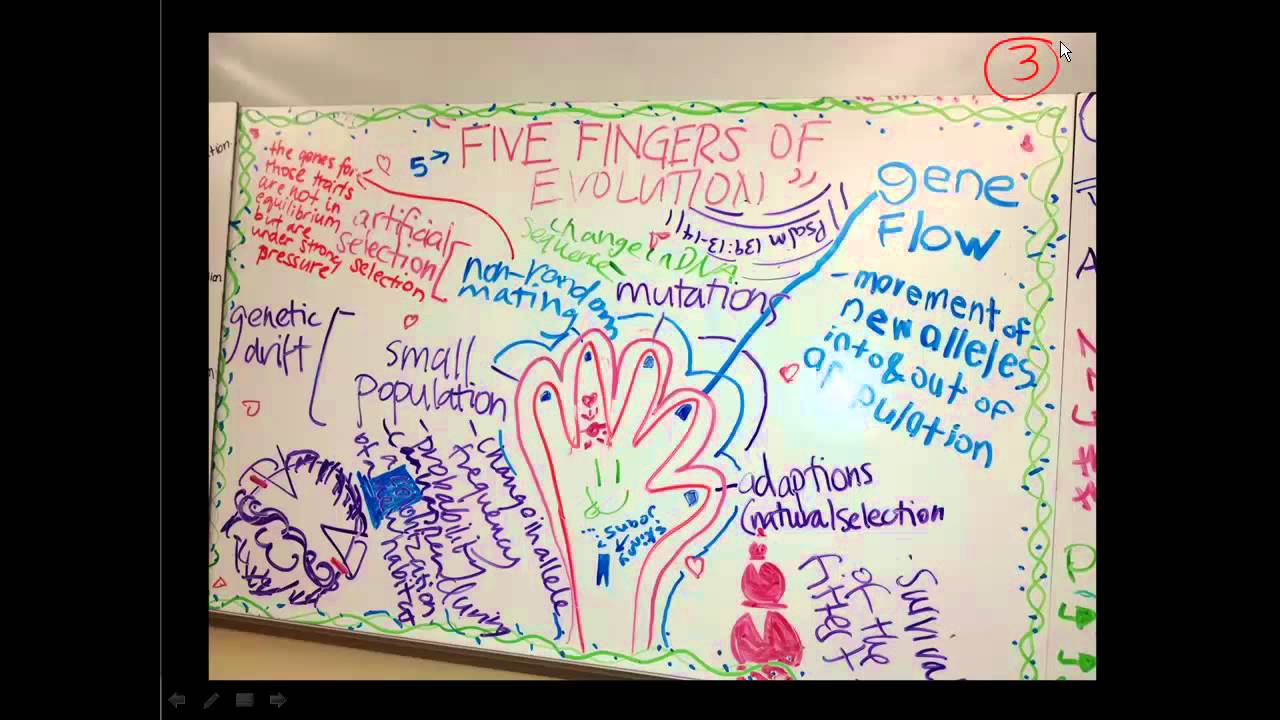 3
5→ "FIVE FINGERS OF
EVOLUTION"
• the genes for
those traits
are not in
equilibrium
but are
under strong selection
pressure
artificial
selection
non-random
mating
change in DNA
sequence
mutations
Psalm 139:13-14
gene
Flow
- movement of
new alleles
into & out of
a population
genetic
drift
small
population
- change in allele
frequency
probability
during
colonization
habitat
of a
- adaptions
(natural selection
survival
of the
fittest
skinny